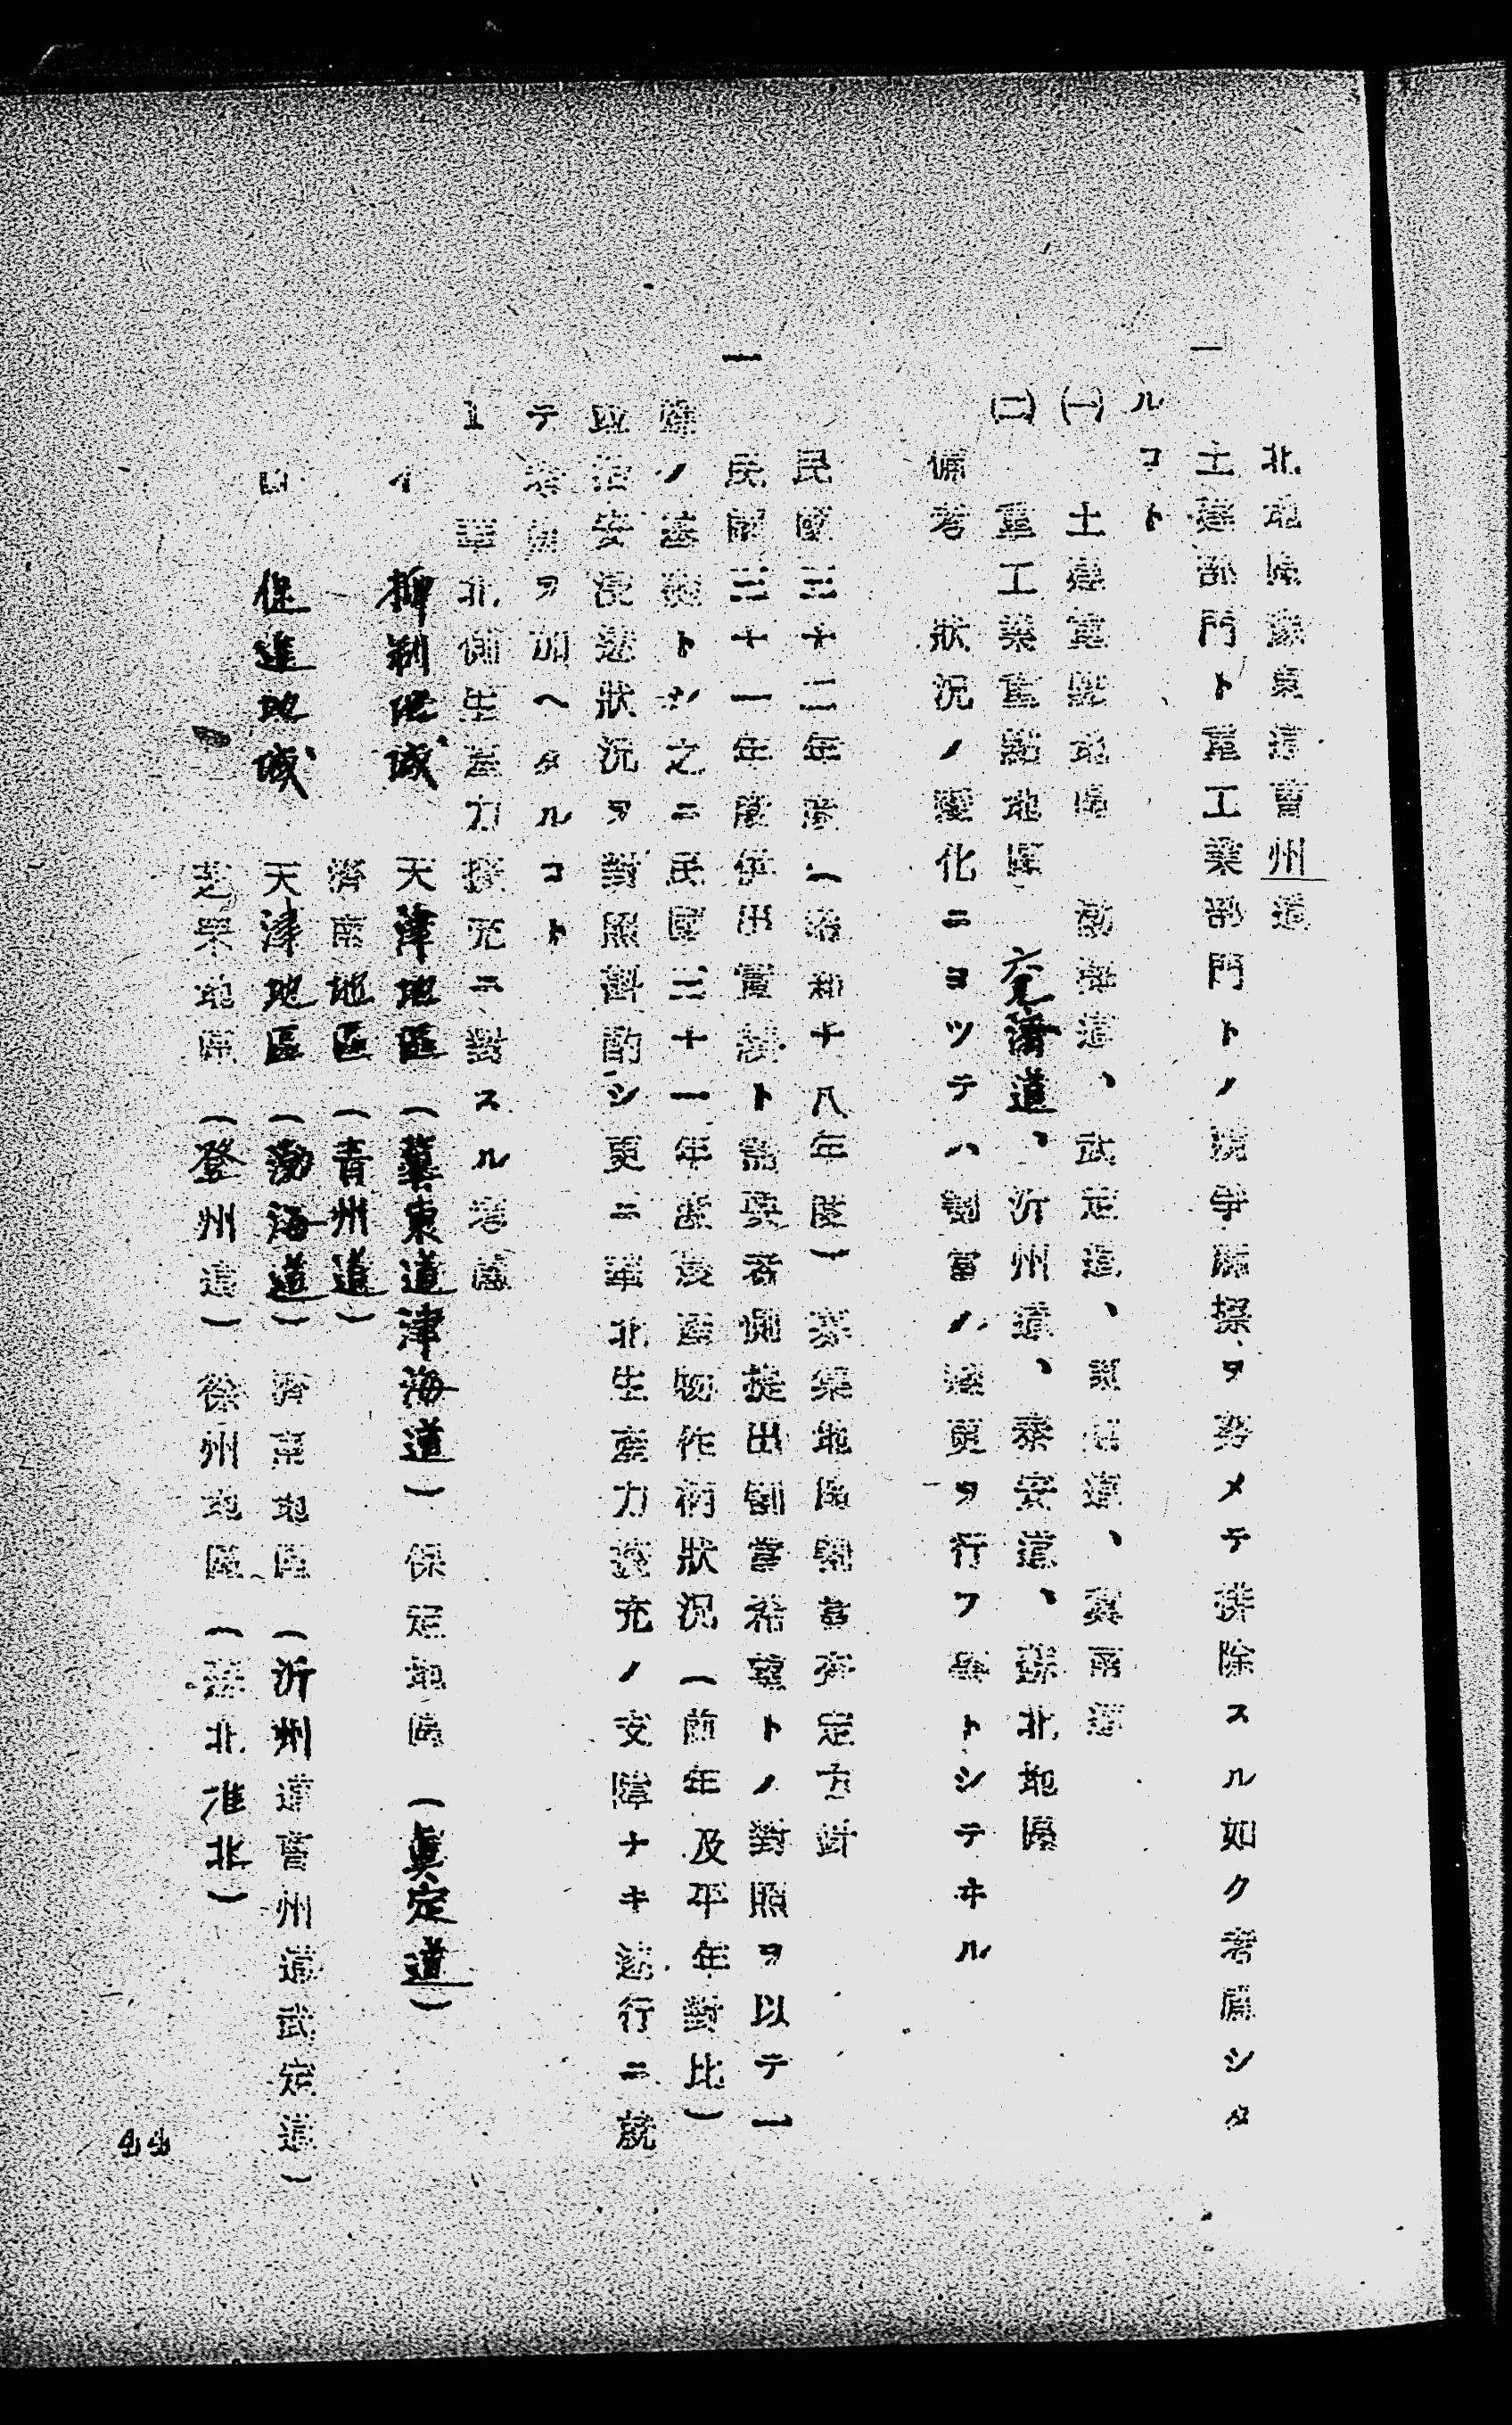 北地區豫東道曹州道
一 土建部門ト重工業部門トノ競爭摩擦ヲ努メテ排除スル如ク考慮シタ
ルコト
(一) 土建重點地區 渤海道、武定道、東臨道、冀南道
(二) 重工業重點地區 兗濟道、沂州道、泰安道、蘇北地區
備考 狀況ノ變化ニヨツテハ割當ノ變更ヲ行フ事トシテヰル
民國三十二年度(昭和十八年度)募集地區割當策定方針
一 民國三十一年度供出實績ト需要者側提出割當希望トノ對照ヲ以テ一
ノ基礎トシ之ニ民國三十一年度農產物作柄狀況(前年及平年對比)
政治安浸透狀況ヲ對照斟酌シ更ニ華北生產力擴充ノ支障ナキ遂行ニ就
テ考慮ヲ加ヘタルコト
1 華北側生產力擴充ニ對スル考慮
イ 抑制地域 天津地區(冀東道津海道)保定地區(眞定道)
濟南地區(青州道)
ロ 促進地域 天津地區(渤海道)濟南地區(沂州道曹州道武定道)
芝罘地區(登州道)徐州地區(蘇北淮北)
44